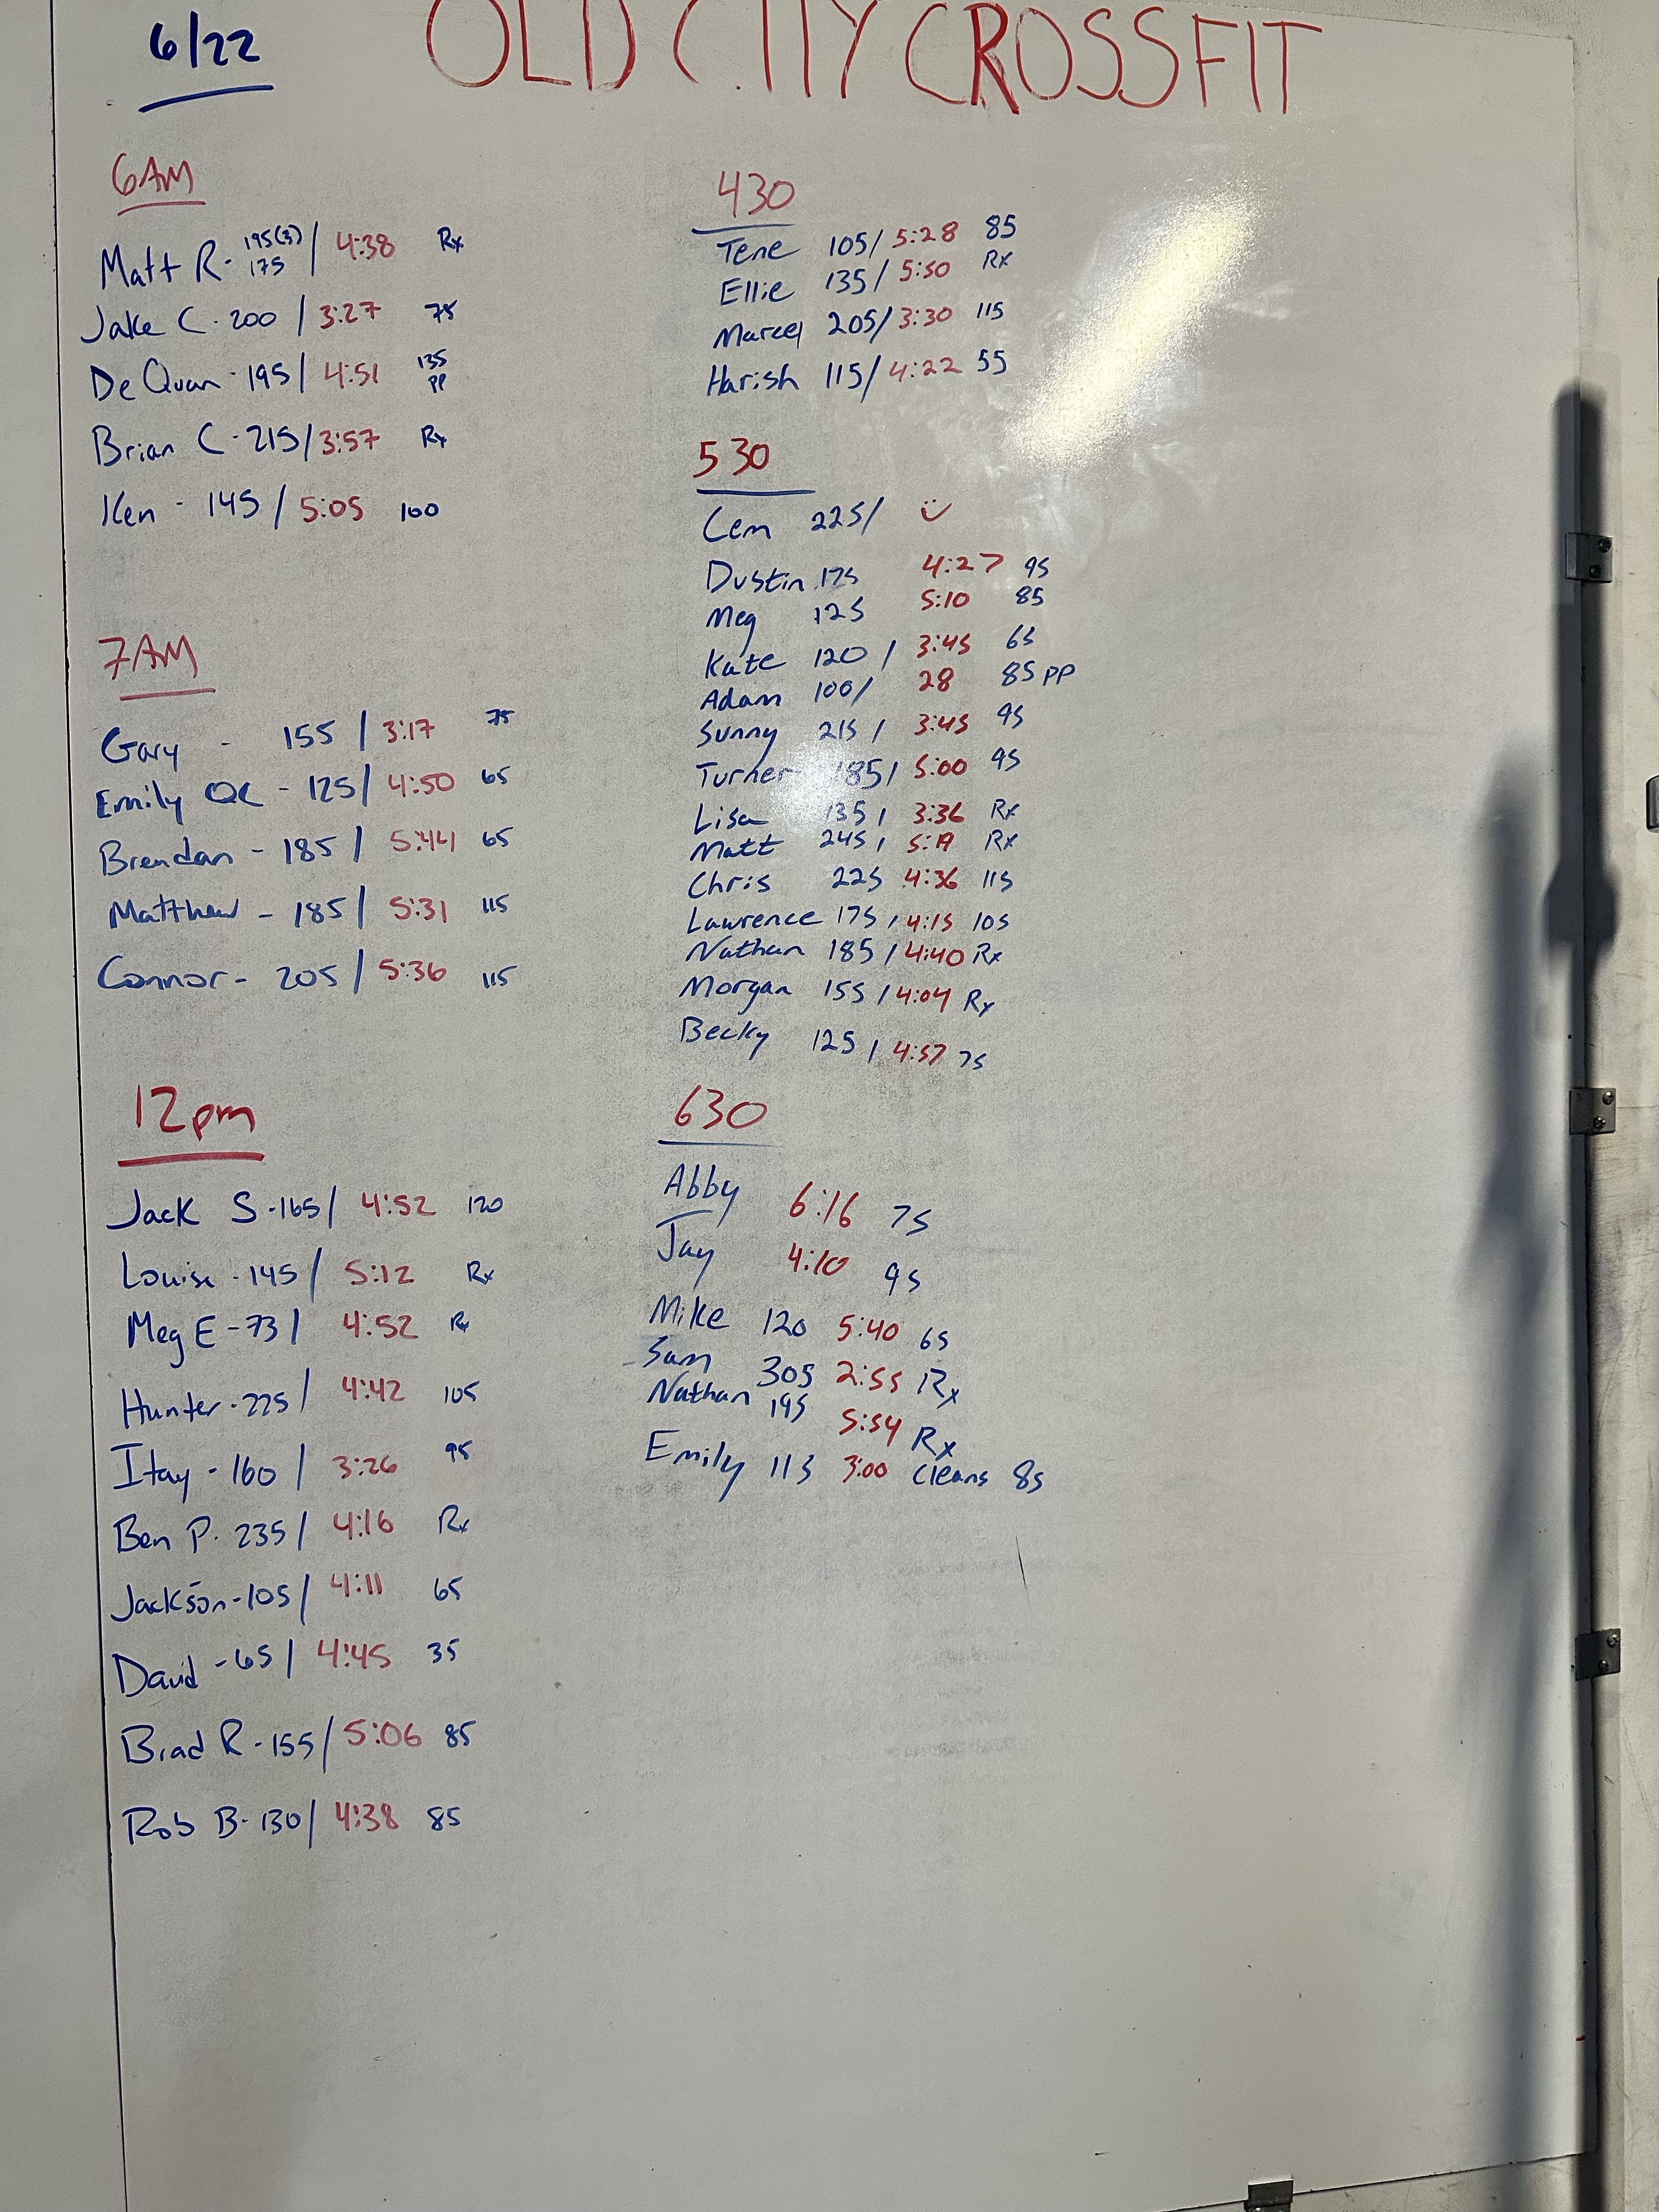 6/22
OLD CITY CROSSFIT
6AM
Matt R - 195(3) 175 / 4:38 Rx
Jake C - 200 / 3:27 75
De Quan - 195 / 4:51 135 PP
Brian C - 215 / 3:57 Rx
Ken - 145 / 5:05 100
7AM
Gary - 155 / 3:17 75
Emily QC - 125 / 4:50 65
Brendan - 185 / 5:44 65
Matthew - 185 / 5:31 115
Connor - 205 / 5:36 115
12pm
Jack S - 165 / 4:52 120
Louise - 145 / 5:12 Rx
Meg E - 73 / 4:52 Rx
Hunter - 225 / 4:42 105
Itay - 160 / 3:26 95
Ben P. 235 / 4:16 Rx
Jackson - 105 / 4:11 65
David - 65 / 4:45 35
Brad R - 155 / 5:06 85
Rob B - 130 / 4:38 85
430
Tene 105 / 5:28 85
Ellie 135 / 5:50 Rx
Marcel 205 / 3:30 115
Harish 115 / 4:22 55
530
Cem 225 /
Dustin 175 4:27 95
Meg 125 5:10 85
Kate 120 / 3:45 65
Adam 100 / 28 85 PP
Sunny 215 / 3:45 95
Turner 185 / 5:00 95
Lisa 135 / 3:36 Rx
Matt 245 / 5:19 Rx
Chris 225 4:36 115
Lawrence 175 / 4:15 105
Nathan 185 / 4:40 Rx
Morgan 155 / 4:04 Rx
Becky 125 / 4:57 75
630
Abby 6:16 75
Jay 4:10 95
Mike 120 5:40 65
Sam 305 2:55 Rx
Nathan 195 5:54 Rx
Emily 115 3:00 cleans 85